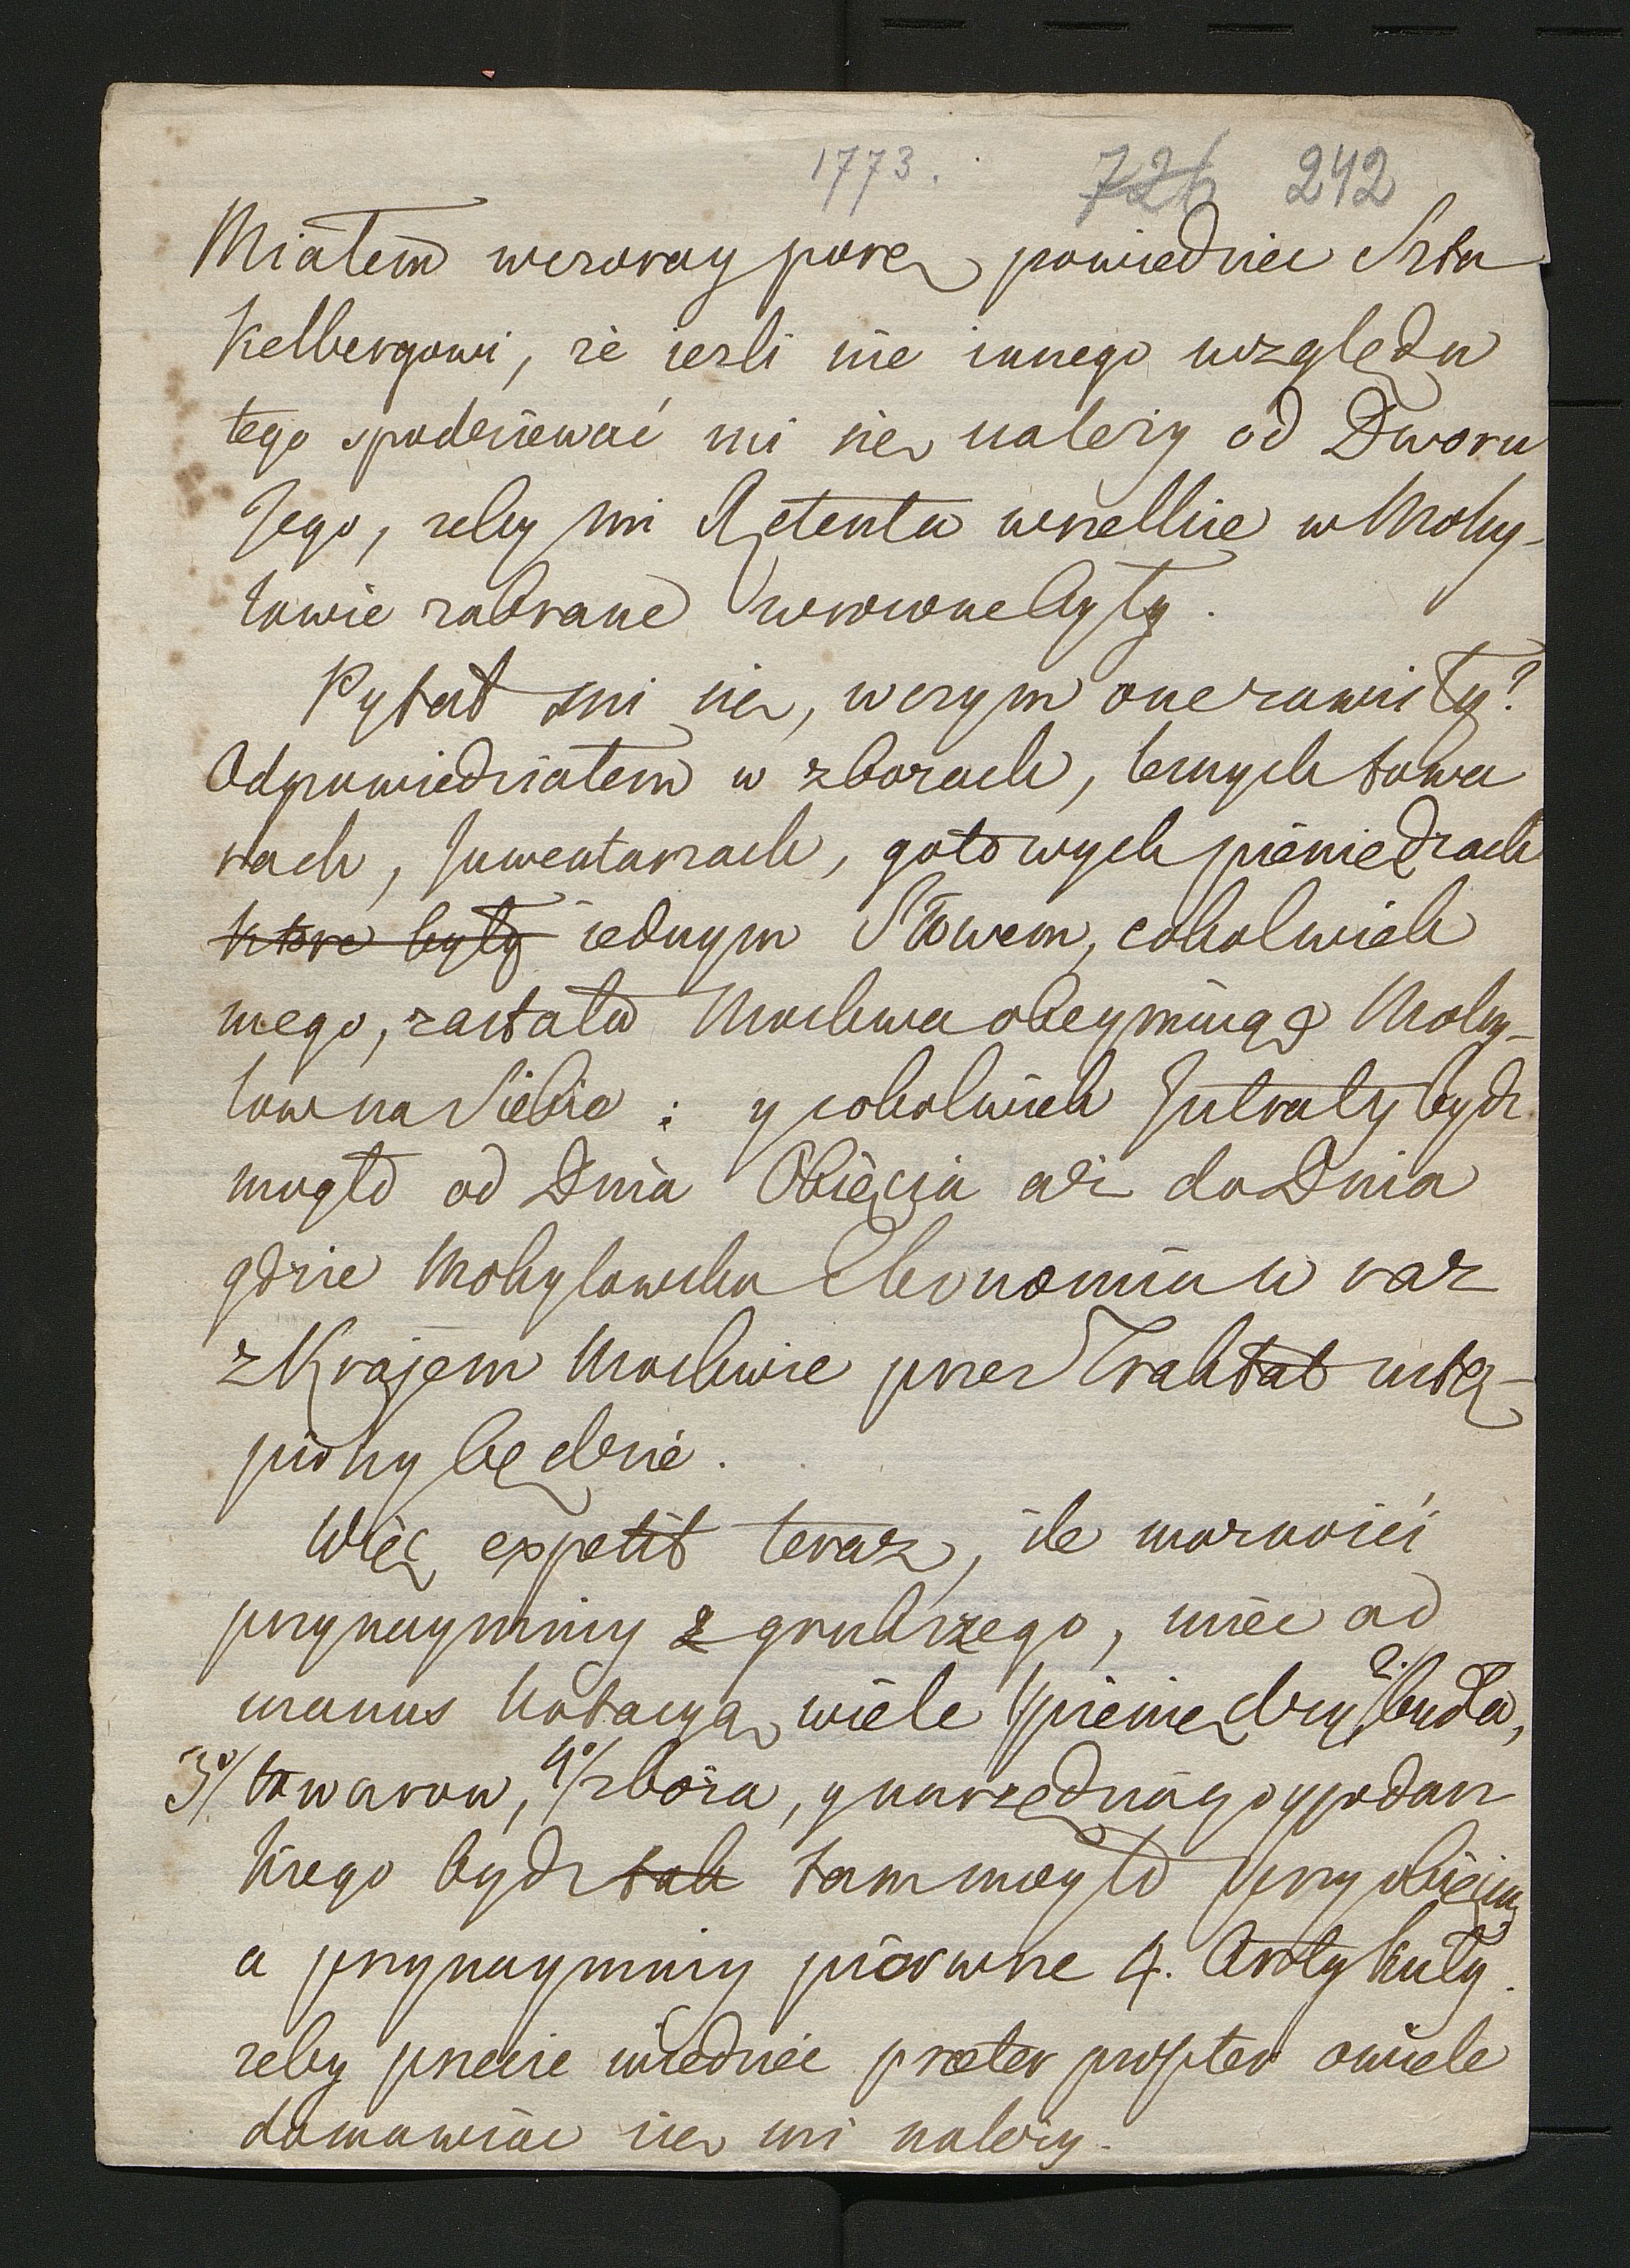 1773. 726 242
Miałem wczoray porę powiedziec Szta
Kelbergowi, że iesli nie innego względu
tego spodziewać mi się należy od Dworu
Jego, żeby mi Retenta wszelkie w Mohy-
lowie zabrane wrocone były.
Pytał mi się, w czym one zawisły?
Odpowiedziałem w zbożach, lesnych towa
rach, Inwentarzach, gotowych pieniedzach
ktore były iednym Słowem, cokolwiek
mego, zastała Moskwa obeymuiąc Mohy-
low na Siebie: y cokolwiek Intraty bydz
mogło od Dnia Obięcia aż do Dnia
gdzie Mohylowska Ekonomia w raz
z Krajem Moskwie przez Traktat ustą-
piony będzie.
Więc expetit teraz, ile moznosci
przynaymniy z grubszego, miec ad
manus Notacyą wiele 1/ pieniędzy 2/ bydła,
3º/ towarow, 4º/ zboża, y narzędzia gospodar
skiego bydz tak tam mogło przy obięciu
a przynaymniy pierwsze 4. Artykuły.
zeby przecie wiedziec præter propter owiele
domawiac się mi należy.